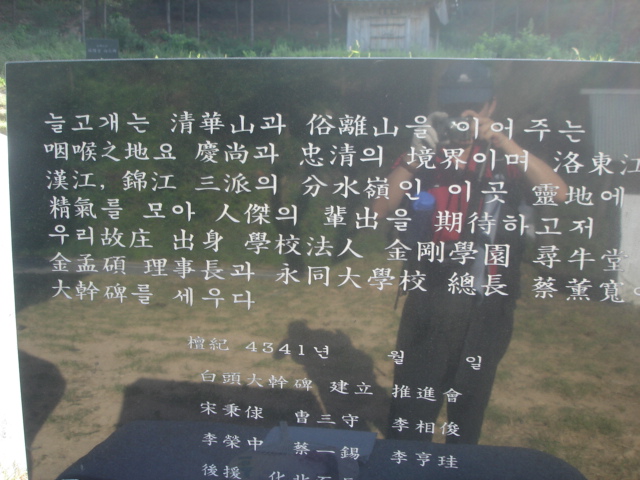 늘고개는 清華山과 俗離山을 이어주는
咽喉之地요 慶尚과 忠清의 境界이며 洛東江
漢江, 錦江 三派의 分水嶺인 이곳 靈地에
精氣를 모아 人傑의 輩出을 期待하고저
우리故庄 出身 學校法人 金剛學園 尋牛堂
金孟碩 理事長과 永同大學校 總長 蔡薰寬
大幹碑를 세우다
檀紀 4341년 월 일
白頭大幹碑 建立 推進會
宋秉俅 曺三守 李相俊
李榮中 蔡一錫 李亨珪
後援 化北面